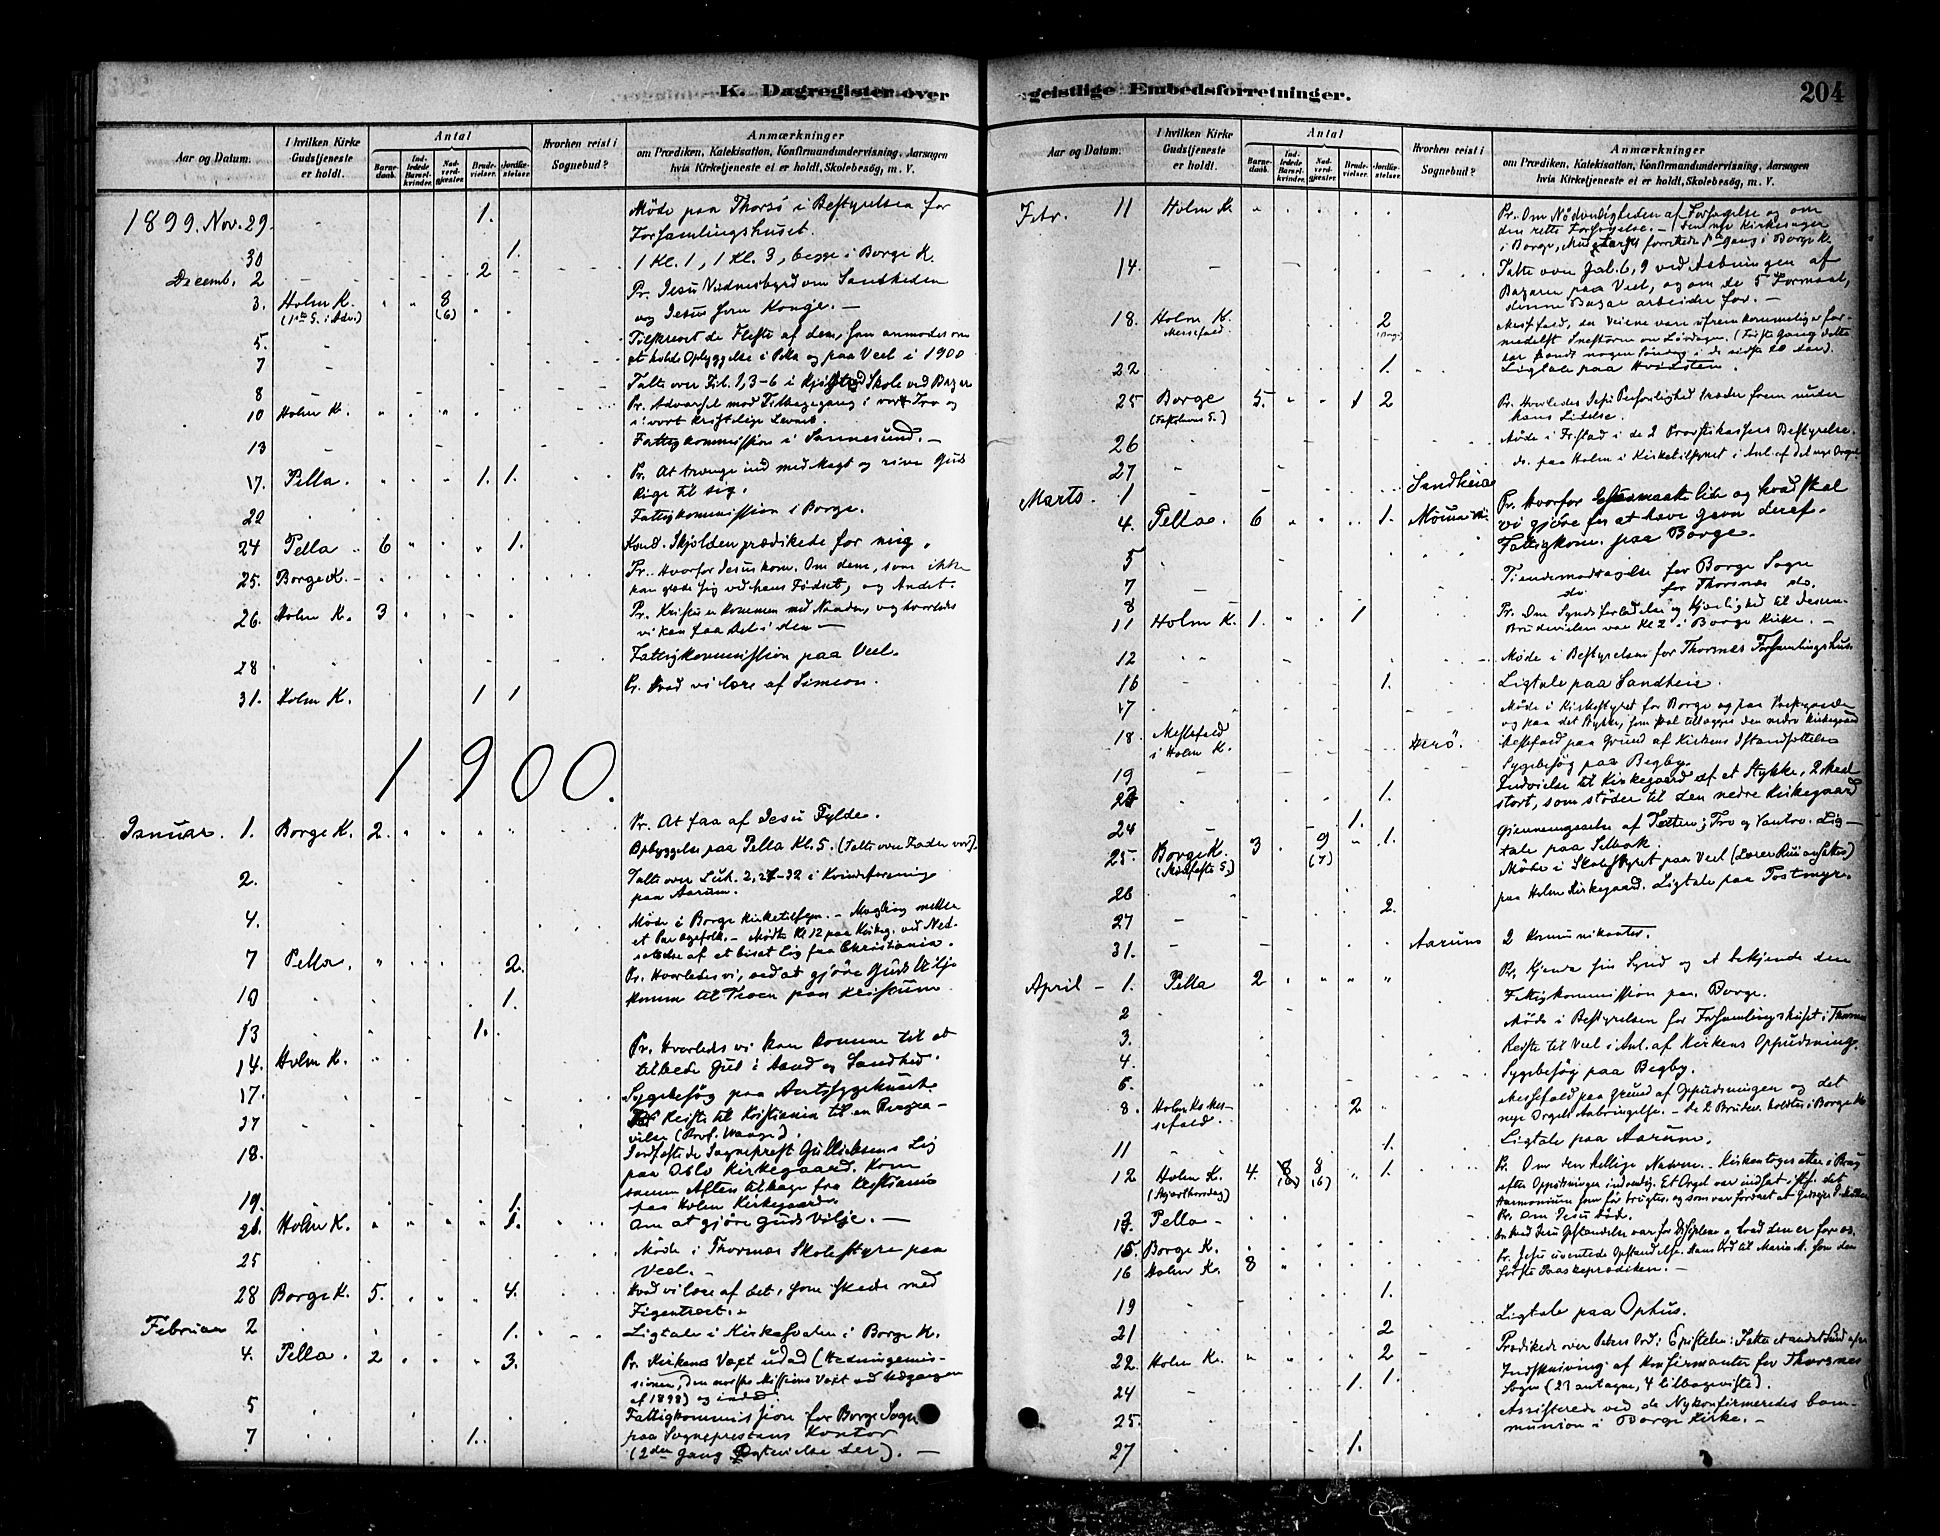 K. Dagregister over
Aar og Datum.
I hvilken Kirke
Gudstjeneste
er holdt.
Antal
Barne-
daab.
Ind-
ledede
Barsel-
kvinder.
Nad-
verd-
gjæster.
Brude-
vielser.
Jordfæ-
stelser.
Hvorhen reist i
Sognebud?
Anmærkninger
om Prædiken, Katekisation, Konfirmandundervisning, Aarsagen
hvis Kirketjeneste ei er holdt, Skolebesøg, m. V.
1899. Nov. 29. 1. Møde paa Thorsø i Bestyrelsen for
Forsamlingshuset.
30 1. 1 Kl. 1, 1 Kl. 3, begge i Borge K.
Decemb. 2 2
3. Holm K. 8 Pr. Jesu Vidnesbyrd om Sandheden
(1ste S. i Adv.) (6) og Jesus som Konge. —
5. Tilskrevet de Fleste af dem, som anmodes om
7 at holde Opbyggelse i Pella og paa Veel i 1900
8 Talte over Fil. 1, 3-6 i Skole ved Bazar
10 Holm K. Pr. Advarsel mod Tilbagegang i vor Tro og
i vort kristelige Levnet.
13 Fattigkommission i Sannesund. —
17. Pella. 1. 1. Pr. At trænge ind med Magt og rive Guds
Rige til sig.
22 Fattigkommission i Borge.
24 Pella 6 1. Kand. Skjolden prædikede for mig.
25. Borge K. Pr. Hvorfor Jesus kom. Om dem, som ikke
kan glæde sig ved hans Fødsel, og Andet.
26. Holm K. 3 Pr. Kristus er kommen med Naaden, og hvorledes
vi kan faa Del i den —
28 Fattigkommission paa Veel.
31. Holm K. 1 1 Pr. Hvad vi lære af Simeon.
1900.
Januar. 1. Borge K. 2. Pr. At faa af Jesu Fylde.
Opbyggelse paa Pella Kl. 5. (Talte over Fader vor).
2. Talte over Luk. 2, 27-32 i Kvindeforening
paa Aarum.
4. Møde i Borge Kirketilsyn. — Mægling mellem
et Par Ægtefolk. — Mødte Kl 12 paa Kirkeg. ved Ned-
sættelse af et bisat Lig fra Christiania.
7 Pella. 2. Pr. Hvorledes vi, ved at gjøre Guds Vilje
10 1. komme til Troen paa Kristum
13 1.
14. Holm K. Pr. Hvorledes vi kan komme til at
tilbede Gud i Aand og Sandhed.
17. Sygebesøg paa Amtssygehuset.
27 Reiste til Kristiania til en Begra-
velse (Prof. Waage).
18. Jordfæstede Sogneprest Gulliksens Lig
paa Oslo Kirkegaard. Kom
samme Aften tilbage fra Kristiania
19. 1. paa Holm Kirkegaard
21. Holm K. 1. Om at gjøre Guds Vilje. —
25 Møde i Thorsnes Skolestyre paa
Veel. —
28 Borge K. 5. 4. Hvad vi lære af det, som skede med
Figentræet. —
Februar 2 1. Ligtale i Kirkesvalen i Borge K.
4. Pella. 2 3. Pr. Kirkens Vext udad (Hedningemis-
sionen, den norske Missions Vext ved Udgangen
af 1898) og indad.
5 Fattigkommission for Borge Sogn
7 1. paa Sogneprestens Kontor
(2den Gang Ægtevielse der). —
geistlige Embedsforretninger.
204
Aar og Datum.
I hvilken Kirke
Gudstjeneste
er holdt.
Antal
Barne-
daab.
Ind-
ledede
Barsel-
kvinder.
Nad-
verd-
gjæster.
Brude-
vielser.
Jordfæ-
stelser.
Hvorhen reist i
Sognebud?
Anmærkninger
om Prædiken, Katekisation, Konfirmandundervisning, Aarsagen
hvis Kirketjeneste ei er holdt, Skolebesøg, m. V.
Febr. 11 Holm K. Pr. Om Nødvendigheden af Forsagelse og om
den rette Forsagelse. — Den nye Kirkesanger
i Borge, forrettede 1ste Gang i Borge K.
14. Talte over Gal. 6, 9 ved Aabningen af
Bazaren paa Veel, og om de 5 Formaal,
denne Bazar arbeider for. —
18. Holm K. 2 Messefald, da Veiene vare ufremkommelige for-
Messefald. medelst Snestorm om Lørdagen. (Første Gang dette
har fundet nogen Søndag i de sidste 20 Aar).
22 1. Ligtale paa Hvidsten.
25 Borge 5. 1 2 Pr. Hvorledes Jesu Personlighed træder frem under
(Fastelavns S.) hans Lidelse.
26 Møde i Frstad i de 2 Provstikassers Bestyrelse.
27 do. paa Holm i Kirketilsynet i Anl. af det nye Orgel
Marts. 1 Sandheia
4. Pella. 6 1. Pr. Hvorfor lide og hvad skal
vi gjøre for at have gavn deraf.
5 Fattigkom. paa Borge.
7 Tiendemodtagelse for Borge Sogn
8 do. for Thorsnes do.
11 Holm K. 1. 1 Pr. Om Syndsforladelse og Kjærlighed til Jesum.
Brudevielsen var Kl 2 i Borge Kirke. —
12 Møde i Bestyrelsen for Thorsnes Forsamlingshus
16 1. Ligtale paa Sandheie.
17 Møde i Kirkestyret for Borge og paa
og paa det Stykke, som skal tillægges den nedre Kirkegaard
18. Messefald Herø. Messefald paa Grund af Kirkens Istandsættelse
i Holm K.
19 Sygebesøg paa Begby.
23 1. Indvielse til Kirkegaard af et Stykke, 2 Maal
stort, som støder til den nedre Kirkegaard
24 1. Gjennemgaaelse af Texten; Tro og Vantro. Lig-
25. Borge K. 3 9 1. tale paa Selbak
(Midfaste S.) (7) Møde i Skolestyret paa Veel
26
27 2. paa Holm Kirkegaard. Ligtale paa Tostmyr.
31. Aarum 2 Kommunikanter.
April 1. Pella 2 Pr. Kjende sin Synd og at bekjende den
2 Fattigkommission paa Borge.
3. Møde i Bestyrelsen for Forsamlingshuset i Thorsnes
4. Reiste til Veel i Anl. af Kirkens Oppudsning.
6. Sygebesøg paa Begby.
8. Holm Ks Mes- 2 Messefald paa Grund af Oppudsningen og det
sefald. nye Orgels Anbringelse. — De 2 Bruder. holdtes i Borge K
11 1. Ligtale paa Aarum.
12 Holm K. 4. 8 8 1. Pr. Om den hellige Nadver. Kirken toges atter i Brug
(Skjærthorsdag) (6) (6) efter Oppudsningen indvendig. Et Orgel var indsat, istf. det
Harmonium som før brugtes, og som var foræret af
13. Pella Pr. Om Jesu Død.
15 Borge K. Hvad Jesu Opstandelse var for Disciplene og hvad den er for os.
16 Holm K. 8 Pr. Jesu uventede Opstandelse. Hans Ord til Maria M. som den
første Paaskeprædiken. —
19 1. Ligtale paa Ophus.
21 2
22. Holm K. 2 Prædikede over Peters Ord i Epistelen:
24 1. 1. Indskrivning af Konfirmanter for Thorsnes
Sogn (27 antagne, 4 tilbageviste).
25. Assisterede ved de Nykonfirmeredes Com-
27 1. munion i Borge Kirke. —